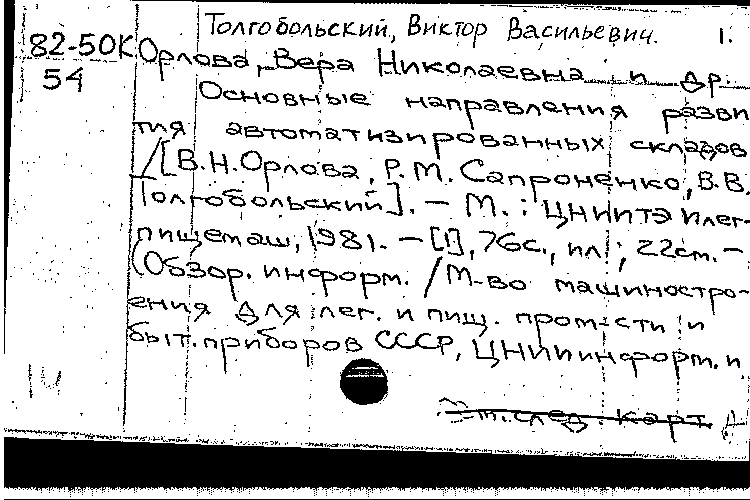 Толгобольский, Виктор Васильевич. 1.
82-50К Орлова, Вера Николаевна и др.
54 Основные направления разви
тия автоматизированных складов
/[В.Н.Орлова, Р.М.Сапроненко, В.В.
Толгобольский]. — М. : ЦНИИТЭИлег-
пищемаш, 1981. — [1], 76с., ил.; 22см. —
(Обзор. информ. / М-во машиностро-
ения для лег. и пищ. пром-сти и
быт. приборов СССР, ЦНИИинформ. и
14
См.след. карт.